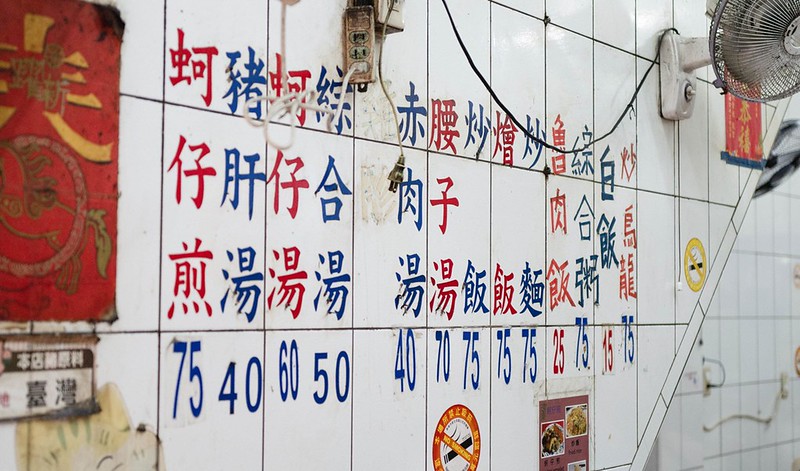 蚵仔煎 75
豬肝湯 40
蚵仔湯 60
綜合湯 50
赤肉湯 40
腰子湯 70
炒飯 75
燴飯 75
炒麵 75
魯肉飯 25
綜合粥 75
白飯 15
炒烏龍 75
臺灣